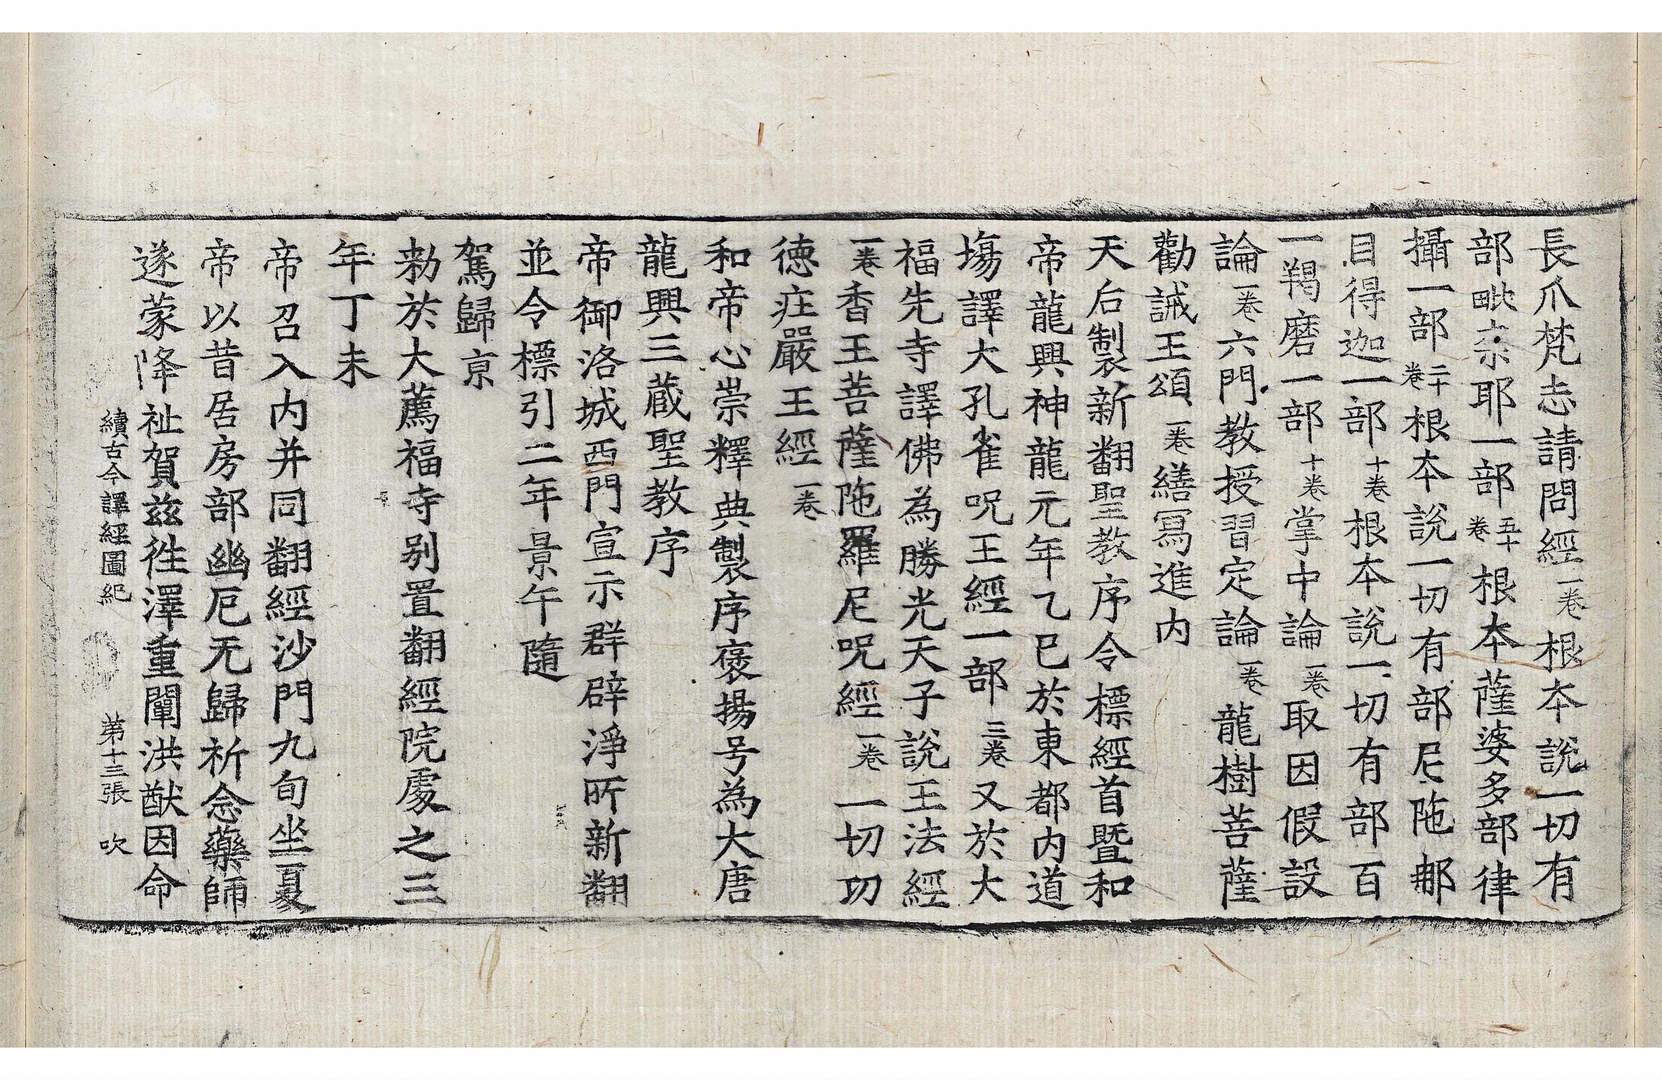 長爪梵志請問經一卷根本說一切有
部毗柰耶一部五十卷根本薩婆多部律
攝一部二十卷根本說一切有部尼陁那
目得迦一部十卷根本說一切有部百
一羯磨一部十卷掌中論一卷取因假設
論一卷六門教授習定論一卷龍樹菩薩
勸誡王頌一卷繕寫進內
天后製新翻聖教序令標經首暨和
帝龍興神龍元年乙巳於東都內道
場譯大孔雀呪王經一部三卷又於大
福先寺譯佛為勝光天子說王法經
一卷香王菩薩陁羅尼呪經一卷一切功
德疘嚴王經一卷
和帝心崇釋典製序褒揚号為大唐
龍興三藏聖教序
帝御洛城西門宣示群辟淨所新翻
並令標引二年景午隨
駕歸京
勑於大薦福寺別置翻經院處之三
年丁未
帝召入內并同翻經沙門九旬坐夏
帝以昔居房部幽厄无歸祈念藥師
遂蒙降祉賀茲徃澤重闡洪猷因命
續古今譯經圖紀 第十三張 吹